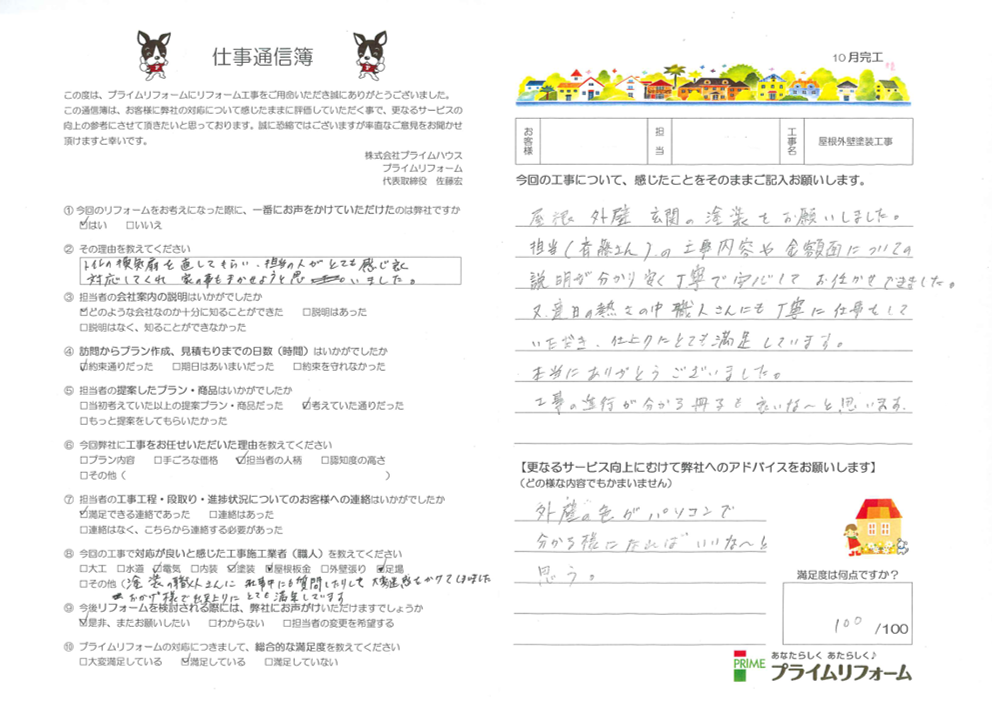 仕事通信簿
この度は、プライムリフォームにリフォーム工事をご用命いただき誠にありがとうございました。
この通信簿は、お客様に弊社の対応について感じたままに評価していただく事で、更なるサービスの
向上の参考にさせて頂きたいと思っております。誠に恐縮ではございますが率直なご意見をお聞かせ
頂けますと幸いです。
株式会社プライムハウス
プライムリフォーム
代表取締役 佐藤宏
① 今回のリフォームをお考えになった際に、一番にお声をかけていただけたのは弊社ですか
☑はい □いいえ
② その理由を教えてください
トイレの換気扇を直してもらい、担当の人がとても感じ良く
対応してくれ 家の事もまかせようと思いました。
③ 担当者の会社案内の説明はいかがでしたか
☑どのような会社なのか十分に知ることができた □説明はあった
□説明はなく、知ることができなかった
④ 訪問からプラン作成、見積もりまでの日数（時間）はいかがでしたか
☑約束通りだった □期日はあいまいだった □約束を守れなかった
⑤ 担当者の提案したプラン・商品はいかがでしたか
□当初考えていた以上の提案プラン・商品だった ☑考えていた通りだった
□もっと提案をしてもらいたかった
⑥ 今回弊社に工事をお任せいただいた理由を教えてください
□プラン内容 □手ごろな価格 ☑担当者の人柄 □認知度の高さ
□その他（ ）
⑦ 担当者の工事工程・段取り・進捗状況についてのお客様への連絡はいかがでしたか
☑満足できる連絡であった □連絡はあった
□連絡はなく、こちらから連絡する必要があった
⑧ 今回の工事で対応が良いと感じた工事施工業者（職人）を教えてください
□大工 □水道 ☑電気 □内装 ☑塗装 ☑屋根板金 □外壁張り ☑足場
□その他（塗装の職人さんに 仕事中にも質問したりして 大変迷惑をかけてしまいました
おかげ様で仕上りにとても満足しています
⑨ 今後リフォームを検討される際には、弊社にお声がけいただけますでしょうか
☑是非、またお願いしたい □わからない □担当者の変更を希望する
⑩ プライムリフォームの対応につきまして、総合的な満足度を教えてください
□大変満足している ☑満足している □満足していない
10月完工
お客様
担当
工事名
屋根外壁塗装工事
今回の工事について、感じたことをそのままご記入お願いします。
屋根 外壁 玄関の塗装をお願いしました。
担当（斉藤さん）の工事内容や金額面についての
説明が分かり安く丁寧で安心してお任せできました。
又、夏日の熱さの中職人さんにも丁寧に仕事をして
いただき、仕上りにとても満足しています。
本当にありがとうございました。
工事の進行が分かる冊子も良いな～と思います。
【更なるサービス向上にむけて弊社へのアドバイスをお願いします】
（どの様な内容でもかまいません）
外壁の色がパソコンで
分かる様になればいいな～と
思う。
満足度は何点ですか？
100 /100
あなたらしく あたらしく♪
PRIME プライムリフォーム